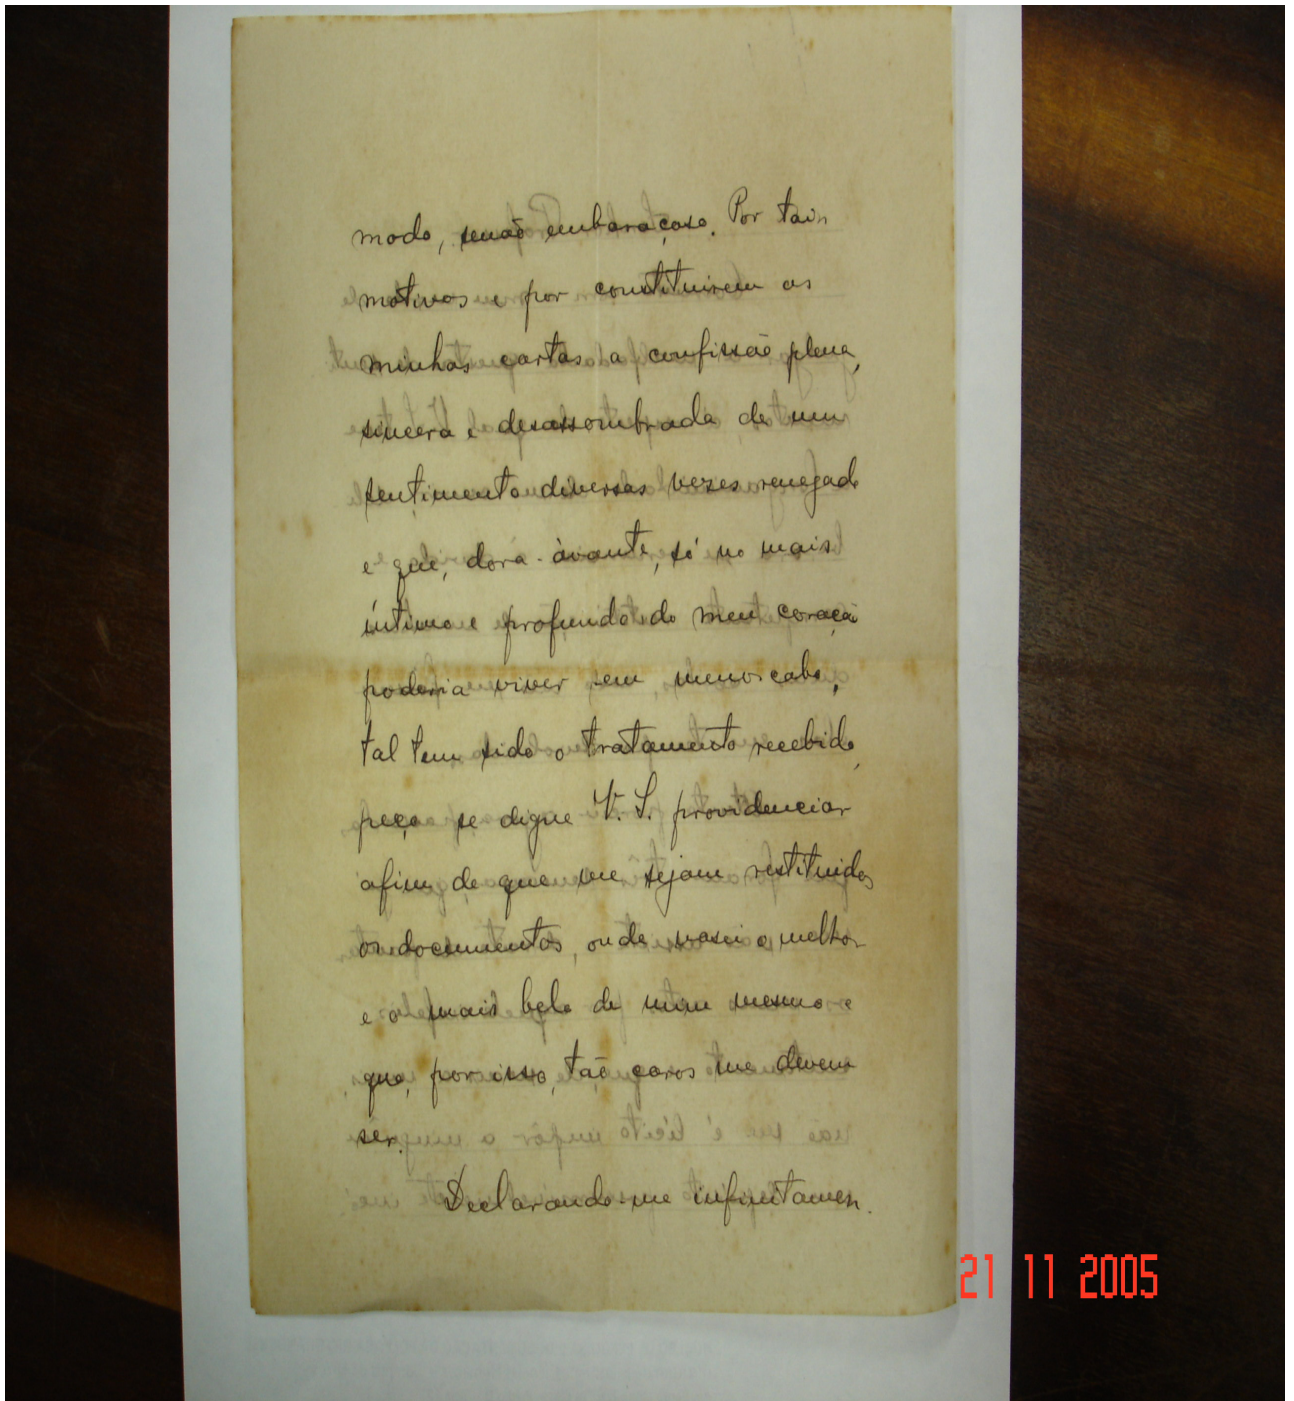 modo, senão embaraçoso. Por tais
motivos e por constituirem as
minhas cartas a confissão plena,
sincera e desassombrada de um
sentimento diversas vezes renegado
e que, dora-àvante, só no mais
íntimo e profundo do meu coração
poderia viver sem menoscabo,
tal tem sido o tratamento recebido,
peço se digne V. S. providenciar
afim de que me sejam restituidos
os documentos, onde vasei o melhor
e o mais belo de mim mesmo e
que, por isso, tão caros me devem
ser.
Declarando-me infinitamen-
21 11 2005